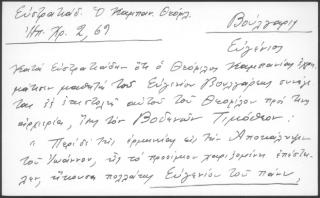 Εὐστρατιάδ. Ὁ Καμπαν. Θεόφιλ.
Ἠπ. Χρ. 2, 69
Βούλγαρις
Εὐγένιος
Κατὰ Εὐστρατιάδην ὅτι ὁ Θεόφιλος Καμπανίας ἐχρη-
μάτισεν μαθητὴς τοῦ Εὐγενίου Βουλγάρεως συνάγε-
ται ἐξ ἐπιστολῆς αὐτοῦ τοῦ Θεοφίλου πρὸς τινα
ἀρχιερέα, ἴσως τὸν Βοδενῶν Τιμόθεον:
" Περὶ δὲ τῆς ἑρμηνείας εἰς τὴν Ἀποκάλυψιν
τοῦ Ἰωάννου, εἰς τὸ προοίμιον
ἤκουσα πολλάκις Εὐγενίου τοῦ πάνυ,